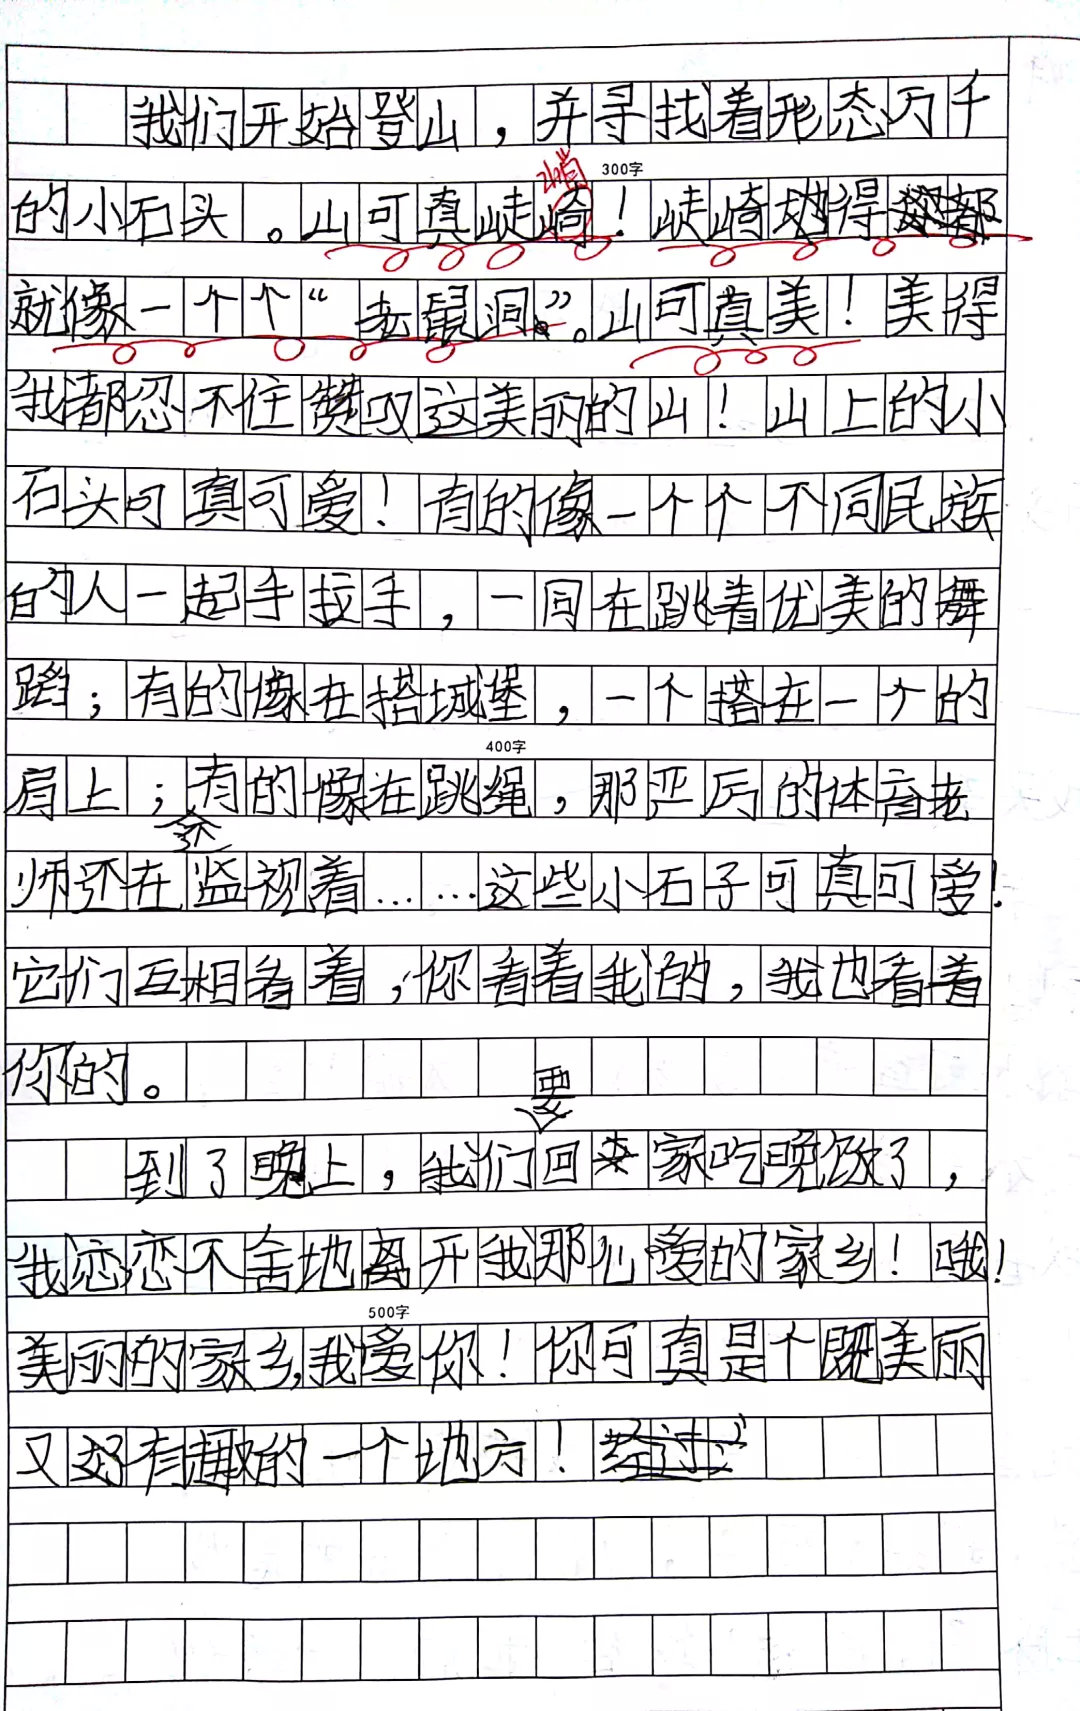 我们开始登山，并寻找着形态万千
峭
300字
的小石头。山可真崎！崎地得都
就像一个个“老鼠洞”。山可真美！美得
我都忍不住赞叹这美丽的山！山上的小
石头可真可爱！有的像一个个不同民族
的人一起手拉手，一同在跳着优美的舞
蹈；有的像在搭城堡，一个搭在一个的
400字
肩上；有的像在跳绳，那严厉的体育老
还
师还在监视着……这些小石子可真可爱！
它们互相看着，你看着我的，我也看着
你的。
要
到了晚上，我们回家吃晚饭了，
我恋恋不舍地离开我那心爱的家乡！哦！
500字
美丽的家乡，我爱你！你可真是个既美丽
又好有趣的一个地方！经过